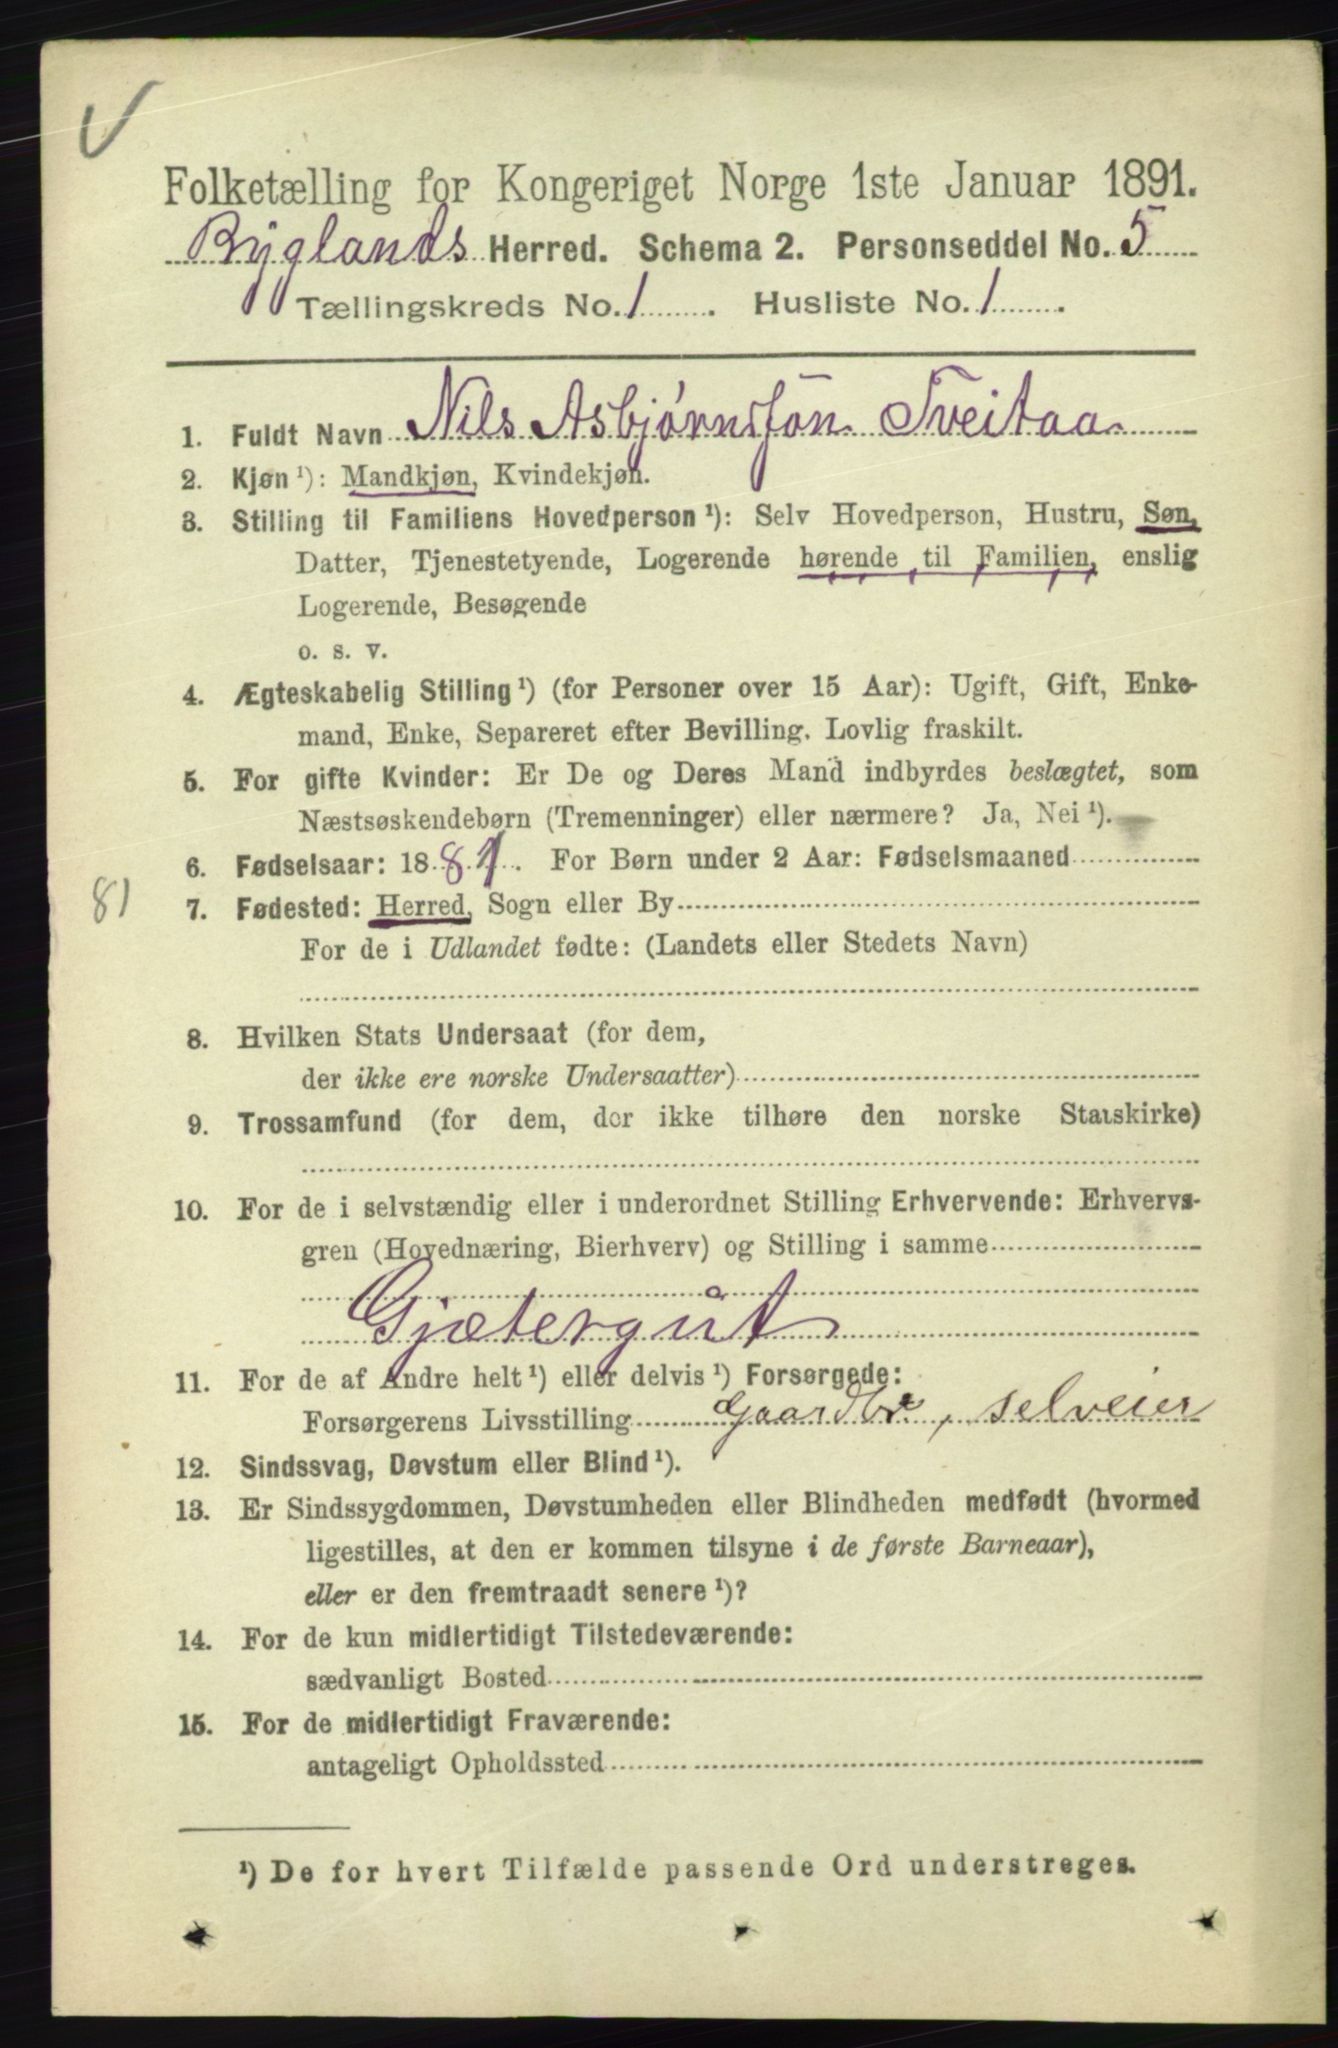 Folketælling for Kongeriget Norge 1ste Januar 1891.
Byglands Herred. Schema 2. Personseddel No. 5
Tællingskreds No. 1. Husliste No. 1.
1. Fuldt Navn Nils Asbjørnsson Tveitaa
2. Kjøn ¹): Mandkjøn, Kvindekjøn.
3. Stilling til Familiens Hovedperson ¹): Selv Hovedperson, Hustru, Søn,
Datter, Tjenestetyende, Logerende hørende til Familien, enslig
Logerende, Besøgende
o. s. v.
4. Ægteskabelig Stilling ¹) (for Personer over 15 Aar): Ugift, Gift, Enke-
mand, Enke, Separeret efter Bevilling. Lovlig fraskilt.
5. For gifte Kvinder: Er De og Deres Mand indbyrdes beslægtet, som
Næstsøskendebørn (Tremenninger) eller nærmere? Ja, Nei ¹).
6. Fødselsaar: 1881. For Børn under 2 Aar: Fødselsmaaned
81
7. Fødested: Herred, Sogn eller By
For de i Udlandet fødte: (Landets eller Stedets Navn)
8. Hvilken Stats Undersaat (for dem,
der ikke ere norske Undersaatter)
9. Trossamfund (for dem, der ikke tilhøre den norske Statskirke)
10. For de i selvstændig eller i underordnet Stilling Erhvervende: Erhvervs-
gren (Hovednæring, Bierhverv) og Stilling i samme
Gjætergut
11. For de af Andre helt ¹) eller delvis ¹) Forsørgede:
Forsørgerens Livsstilling Gaardbr, selveier
12. Sindssvag, Døvstum eller Blind ¹).
13. Er Sindssygdommen, Døvstumheden eller Blindheden medfødt (hvormed
ligestilles, at den er kommen tilsyne i de første Barneaar),
eller er den fremtraadt senere ¹)?
14. For de kun midlertidigt Tilstedeværende:
sædvanligt Bosted
15. For de midlertidigt Fraværende:
antageligt Opholdssted
¹) De for hvert Tilfælde passende Ord understreges.